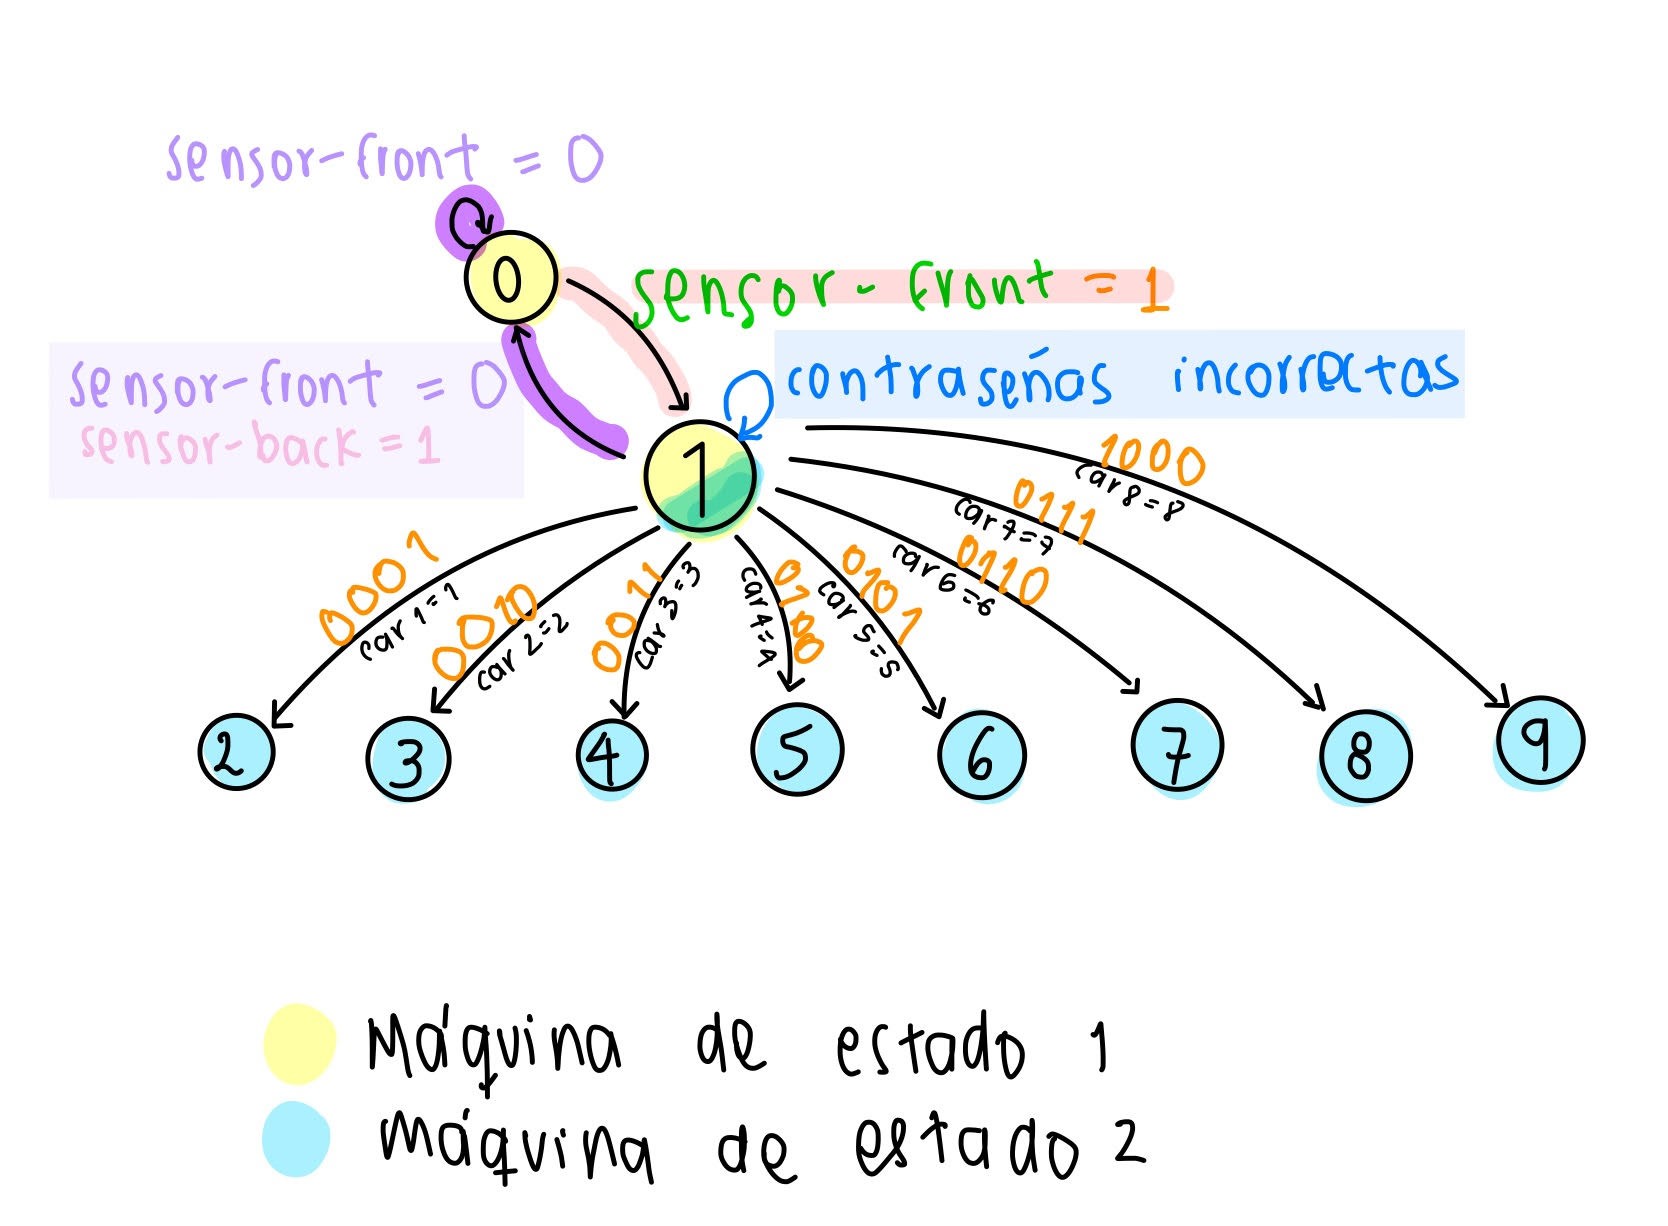 sensor-front = 0
0
sensor-front = 1
sensor-front = 0
sensor-back = 1
contraseñas incorrectas
1
0001
car 1=1
0010
car 2=2
0011
car 3=3
0100
car 4=4
0101
car 5=5
0110
car 6=6
0111
car 7=7
1000
car 8=8
2 3 4 5 6 7 8 9
Máquina de estado 1
máquina de estado 2